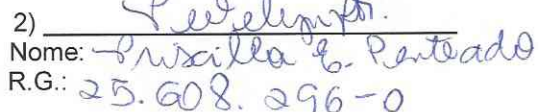 2)
Nome: Priscilla E. Penteado
R.G.: 25.608.296-0